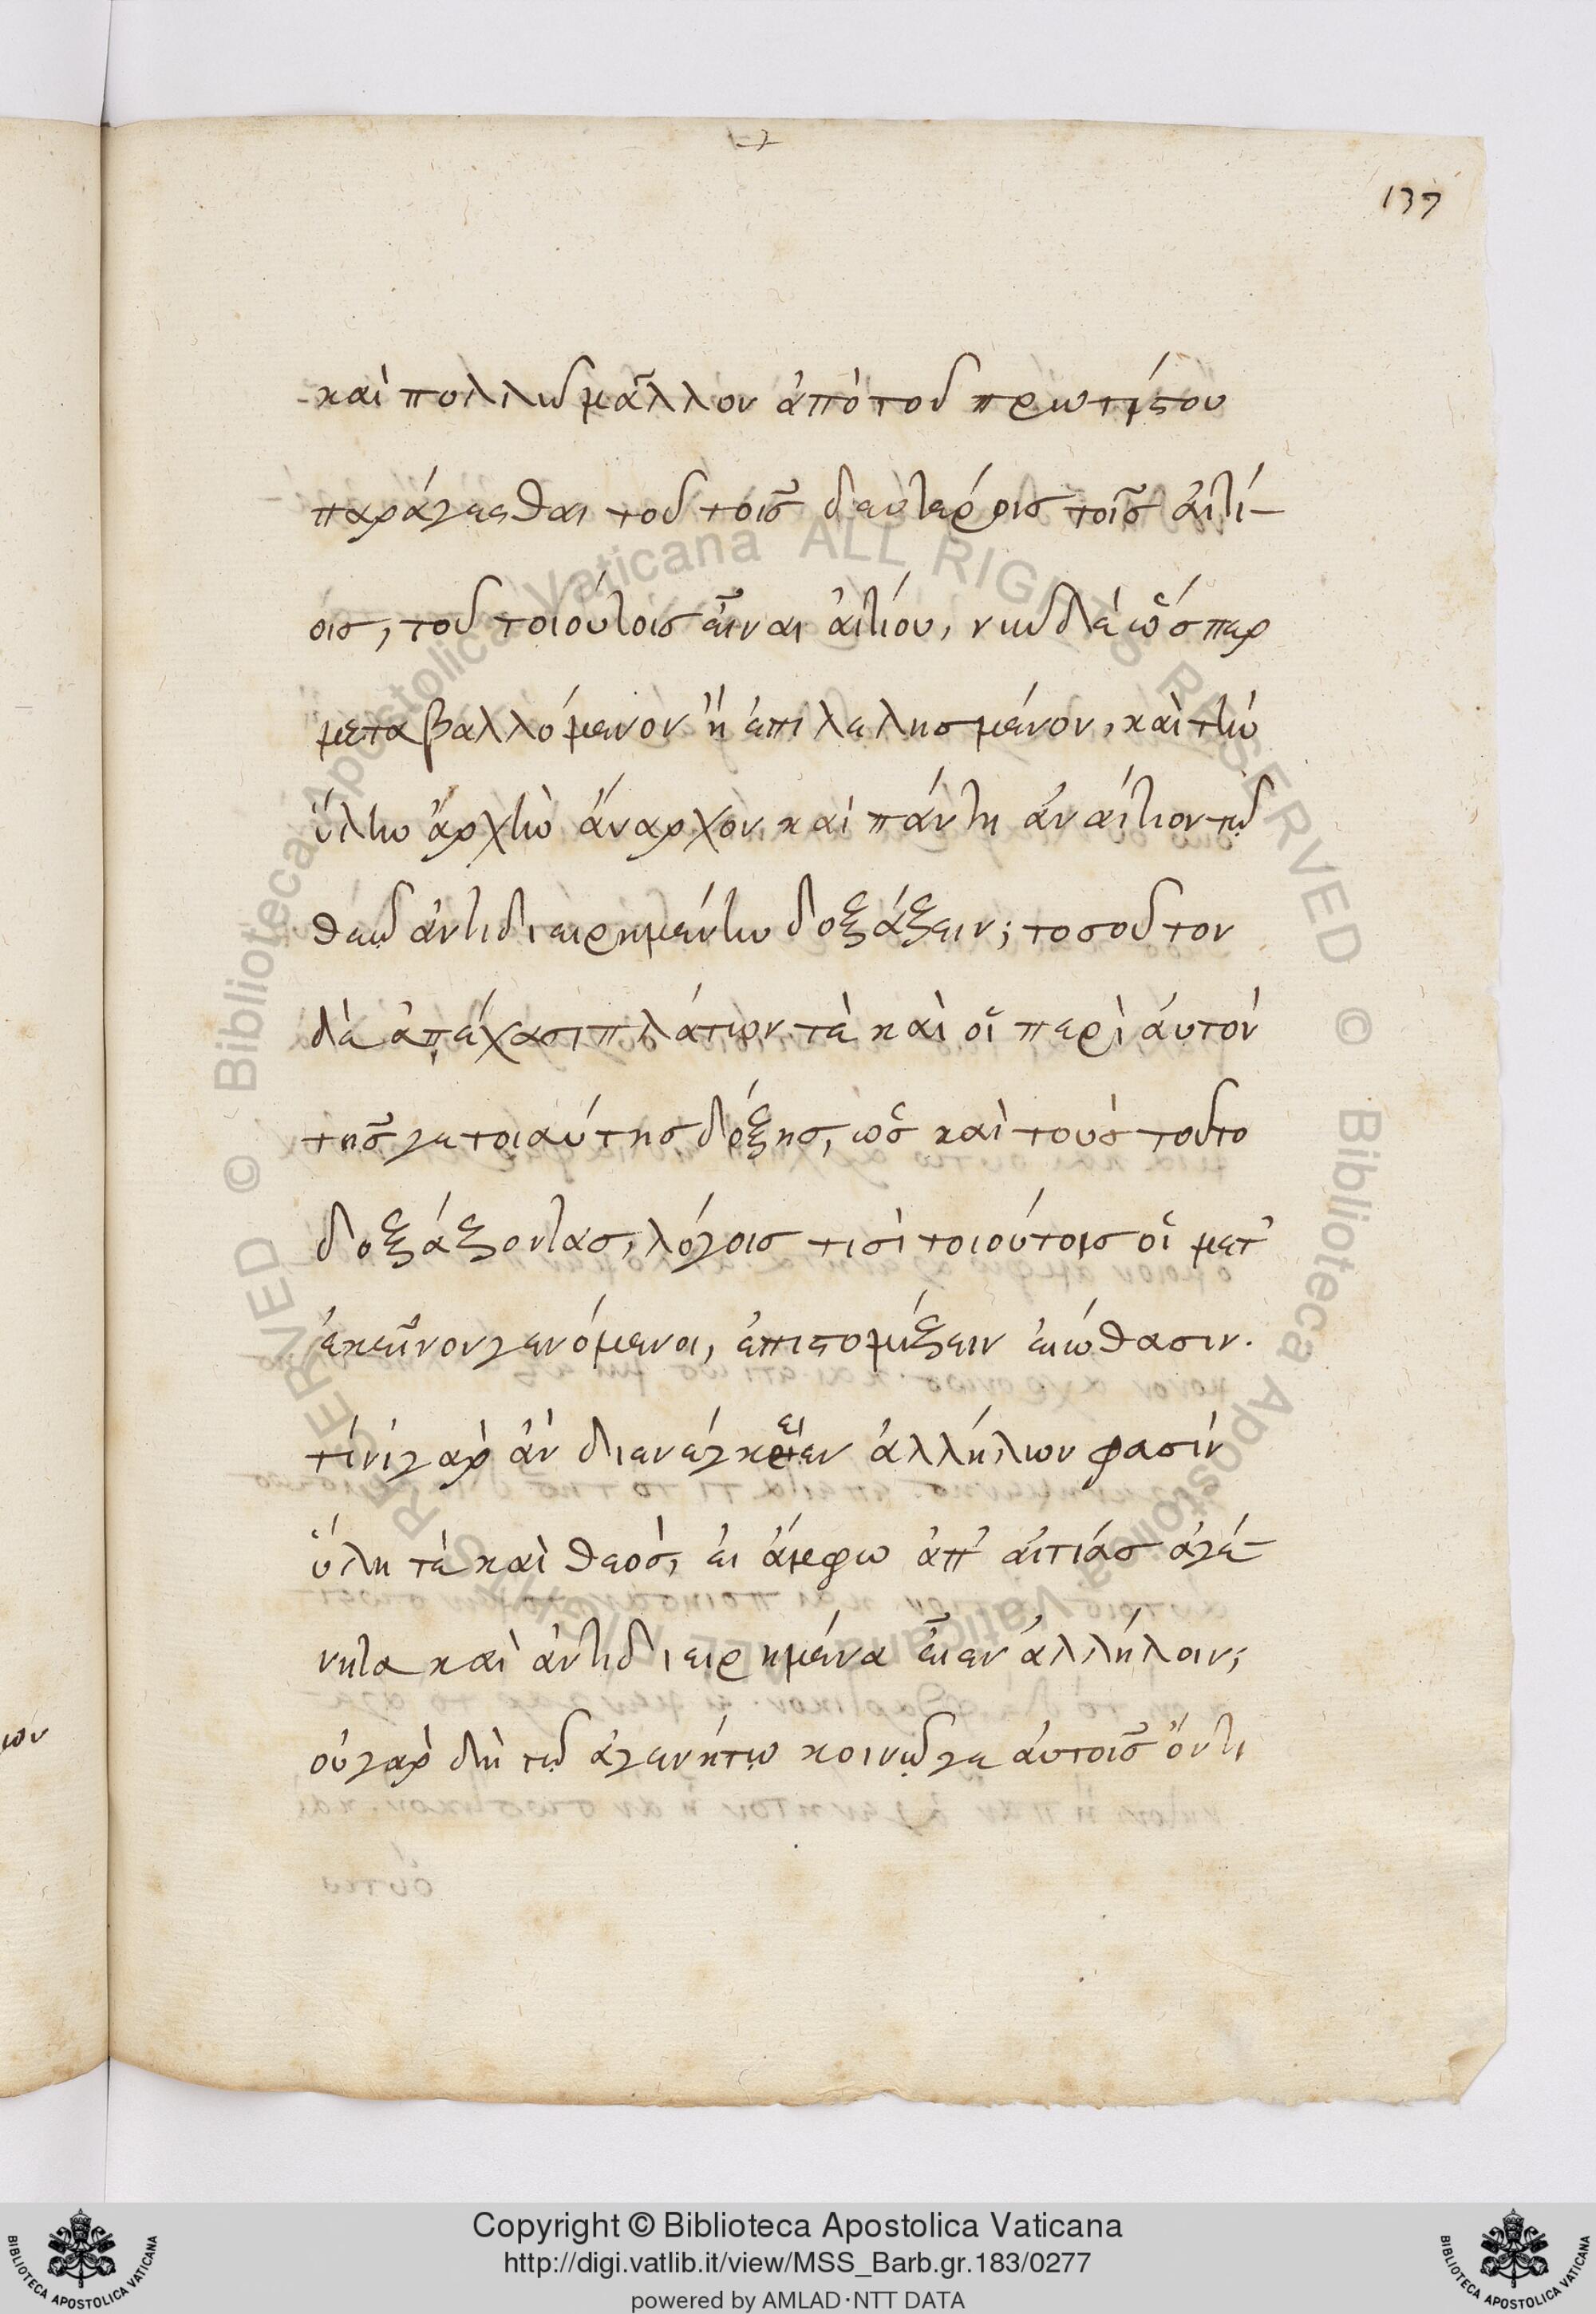 137
καὶ πολλῶ μᾶλλον ἀπὸ τοῦ πρωτίστου
παράγεσθαι τοῦ τοῖς δευτέροις τοῖς αἰτί-
οις, τοῦ τοιούτοις εἶναι αἰτίου, νῦν δὲ ὥσπερ
μεταβαλλόμενον ἢ ἐπιλελησμένον, καὶ τὴν
ὕλην ἀρχὴν ἄναρχον καὶ πάντη ἀναίτιον τῷ
θεῷ ἀντιδιειρημένην δοξάζειν; τοσοῦτον
δὲ ἀπέχασι πλάτων τὲ καὶ οἱ περὶ αὐτὸν
τῆς γε τοιαύτης δόξης, ὡς καὶ τοὺς τοῦτο
δοξάζοντας, λόγοις τισὶ τοιούτοις οἱ μετ'
ἐκεῖνον γενόμενοι, ἐπιστομίζειν εἰώθασιν.
τίνι γὰρ ἂν διενέγκειεν ἀλλήλων φασὶν
ὕλη τὲ καὶ θεὸς, εἰ ἄμφω ἀπ' αἰτίας ἀγέ-
νητα καὶ ἀντιδιειρημένα εἶεν ἀλλήλοιν;
οὐ γὰρ δὴ τῷ ἀγενήτῳ κοινῷ γε αὐτοῖς ὄντι
ων
© Biblioteca Apostolica Vaticana ALL RIGHTS RESERVED © Biblioteca Apostolica Vaticana ALL RIGHTS RESERVED
BIBLIOTECA APOSTOLICA VATICANA
Copyright © Biblioteca Apostolica Vaticana
http://digi.vatlib.it/view/MSS_Barb.gr.183/0277
powered by AMLAD·NTT DATA
BIBLIOTECA APOSTOLICA VATICANA